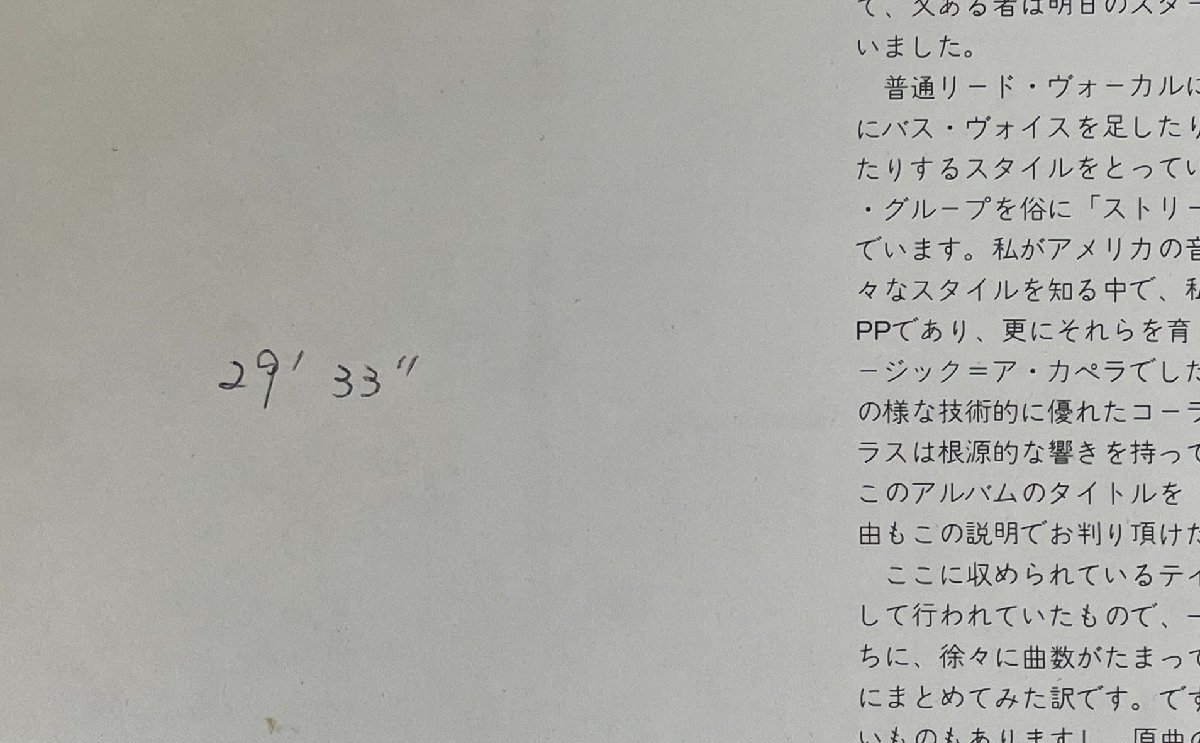 29′ 33″
て、又ある者は明日のスター
いました。
普通リード・ヴォーカルに
にバス・ヴォイスを足したり
たりするスタイルをとってい
・グループを俗に「ストリー
でいます。私がアメリカの音
々なスタイルを知る中で、私
PPであり、更にそれらを育
ージック＝ア・カペラでした
の様な技術的に優れたコーラ
ラスは根源的な響きを持って
このアルバムのタイトルを
曲もこの説明でお判り頂けた
ここに収められているテイ
して行われていたもので、一
ちに、徐々に曲数がたまって
にまとめてみた訳です。です
いものもありますし、原曲の